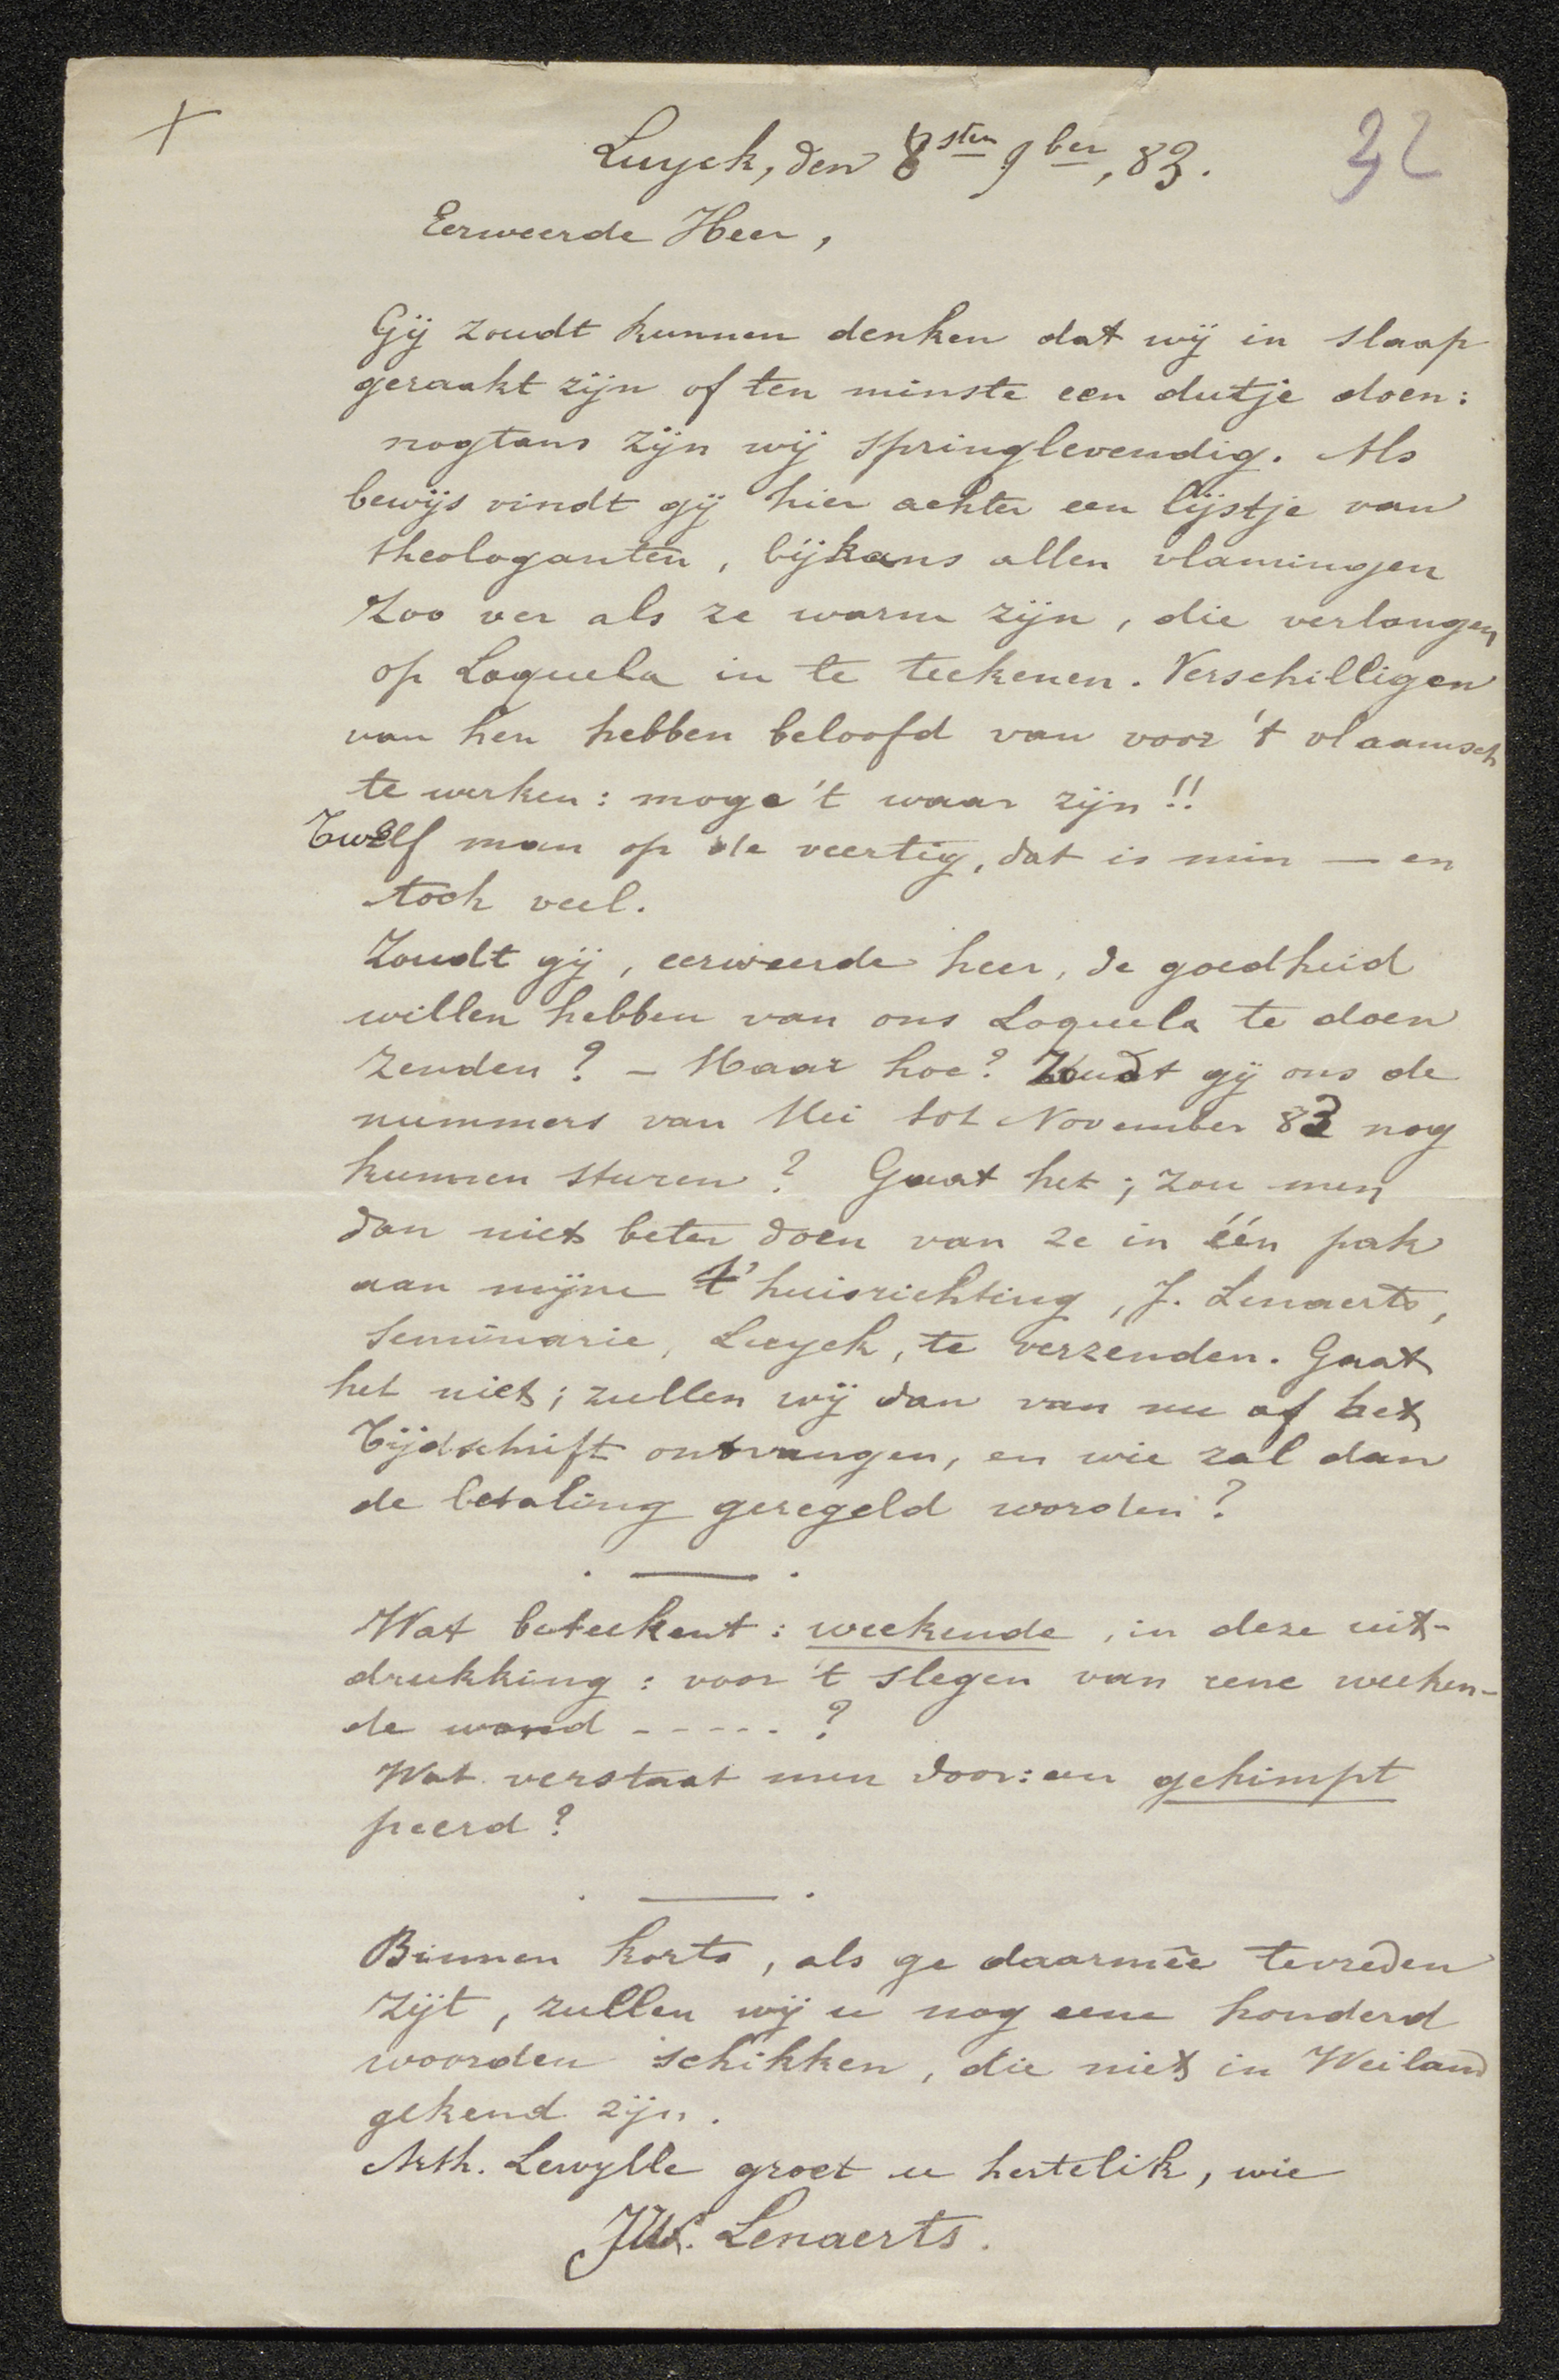 32
Luyck, den 8sten 9ber, 83.
Eerweerde Heer,
Gij zoudt kunnen denken dat wij in slaap
geraakt zijn of ten minste een dutje doen:
nogtans zijn wij springlevendig. Als
bewijs vindt gij hier achter een lijstje van
theologanten, bijkans allen vlamingen
Zoo ver als ze warm zijn, die verlangen
op Loquela in te teekenen. Verschilligen
van hen hebben beloofd van voor 't vlaamsch
te werken: moge 't waar zijn!!
Twelf man op de veertig, dat is min — en
toch veel.
Zoudt gij, eerweerde heer, de goedheid
willen hebben van ons Loquela te doen
zenden? – Maar hoe? Zoudt gij ons de
nummers van Mei tot November 83 nog
kunnen sturen? Gaat het; zou men
dan niet beter doen van ze in één pak
aan mijne t'huisrichting, J. Lenaerts,
Seminarie, Luyck, te verzenden. Gaat
het niet; zullen wij dan van nu af het
Tijdschrift ontvangen, en wie zal dan
de betaling geregeld worden?
. — .
Wat beteekent: weekende, in deze uit-
drukking: voor 't slegen van eene weeken-
de wand - - - - - ?
Wat verstaat men door: een gekimpt
peerd?
. — .
Binnen korts, als ge daarmêe tevreden
zijt, zullen wij u nog eene honderd
woorden schikken, die niet in Weiland
gekend zijn.
Arth. Lewylle groet u hertelik, wie
JW. Lenaerts.